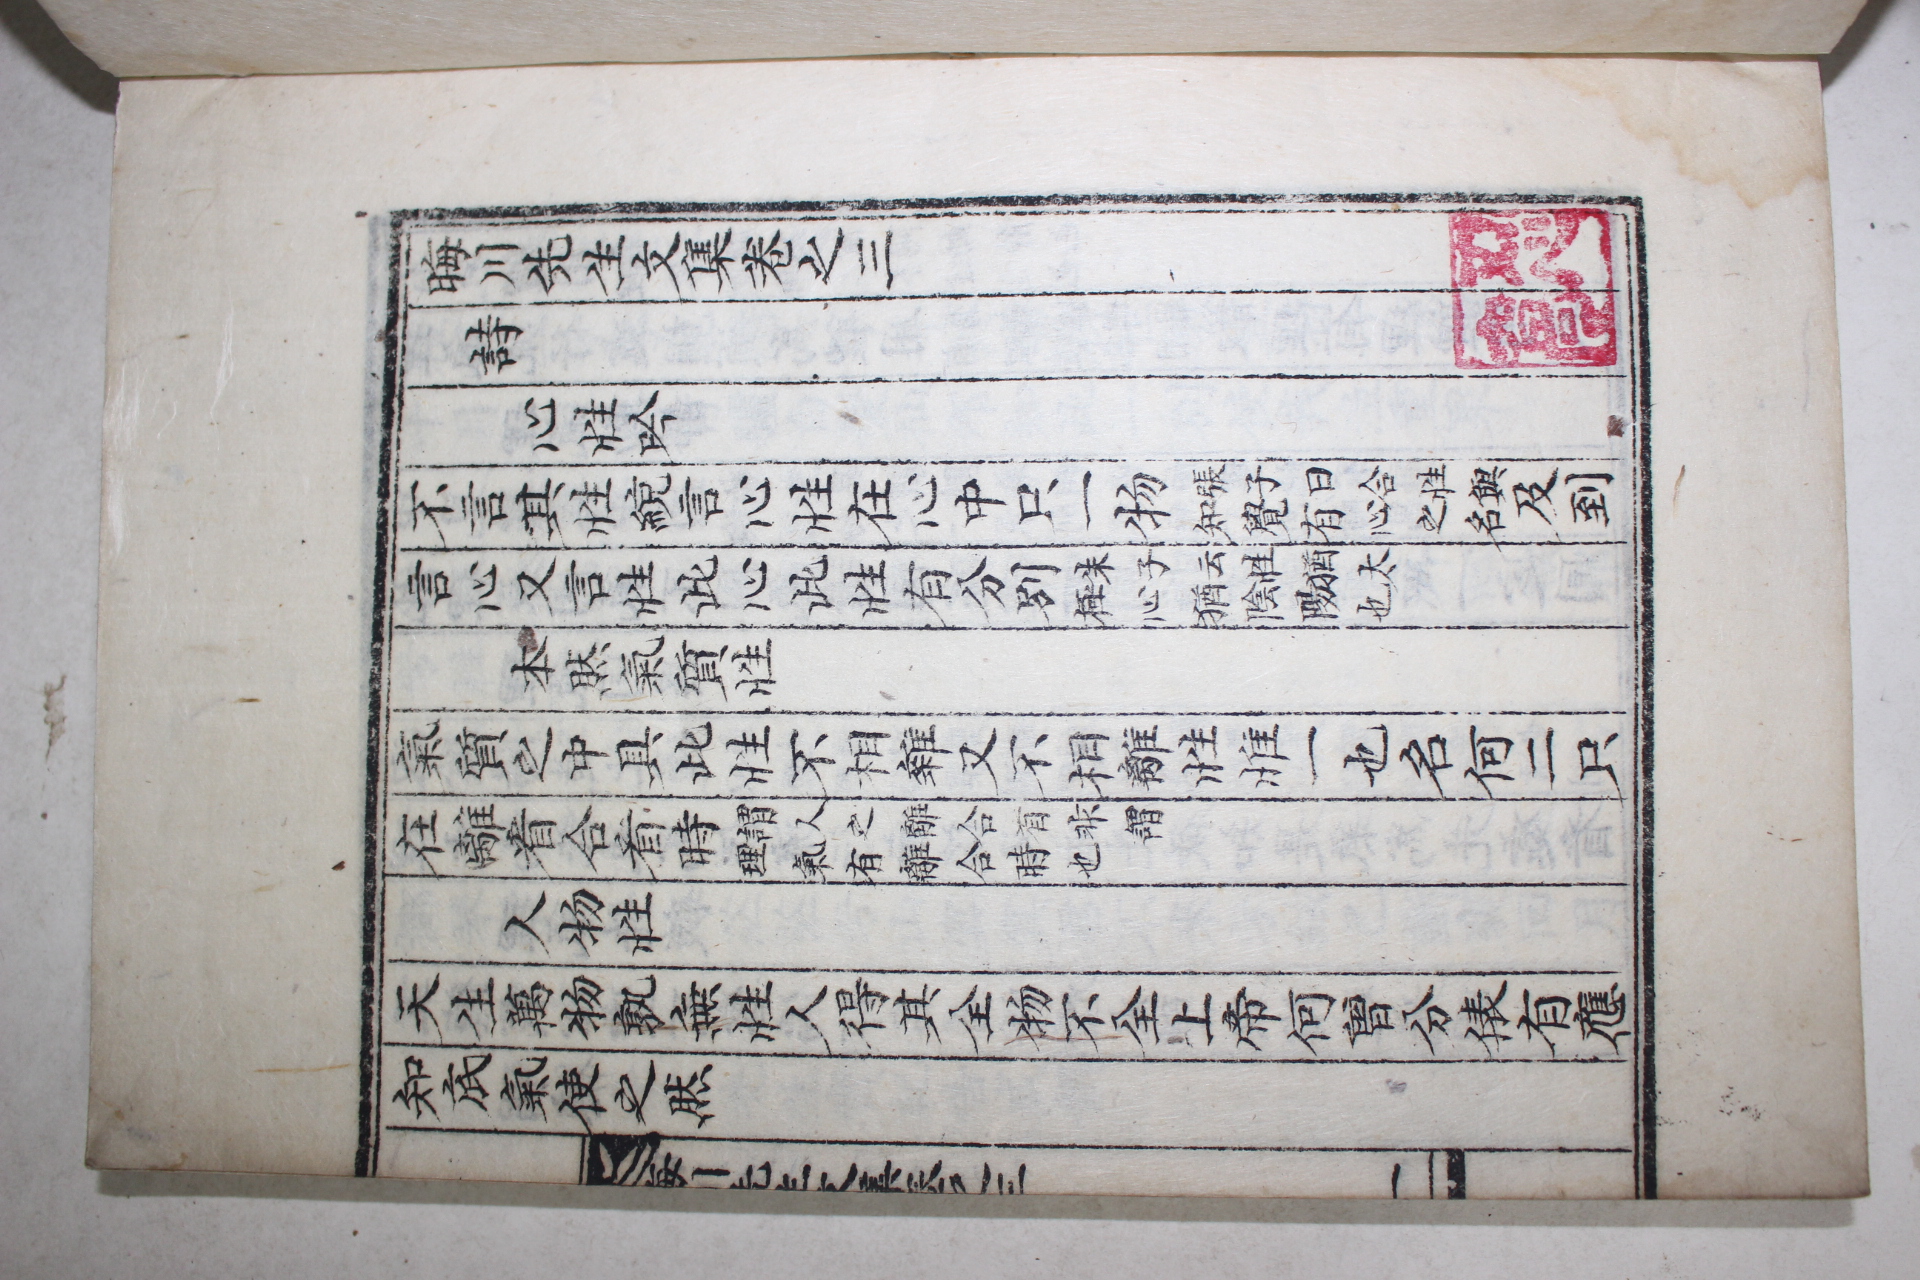 晦川先生文集卷之三
詩
心性吟
不言其性統言心性在心中只一物張子曰合性與知覺有心之名及到
言心又言性此心此性有分別朱子云性猶太極心猶陰陽也
本然氣質性
氣質之中具此性不相雜又不相離性惟一也名何二只
在離看合看時謂人之離合看非謂理氣有離合時也
人物性
天生萬物孰無性人得其全物不全上帝何曾分俵有應
知底氣使之然
晦川先生文集卷之三 一